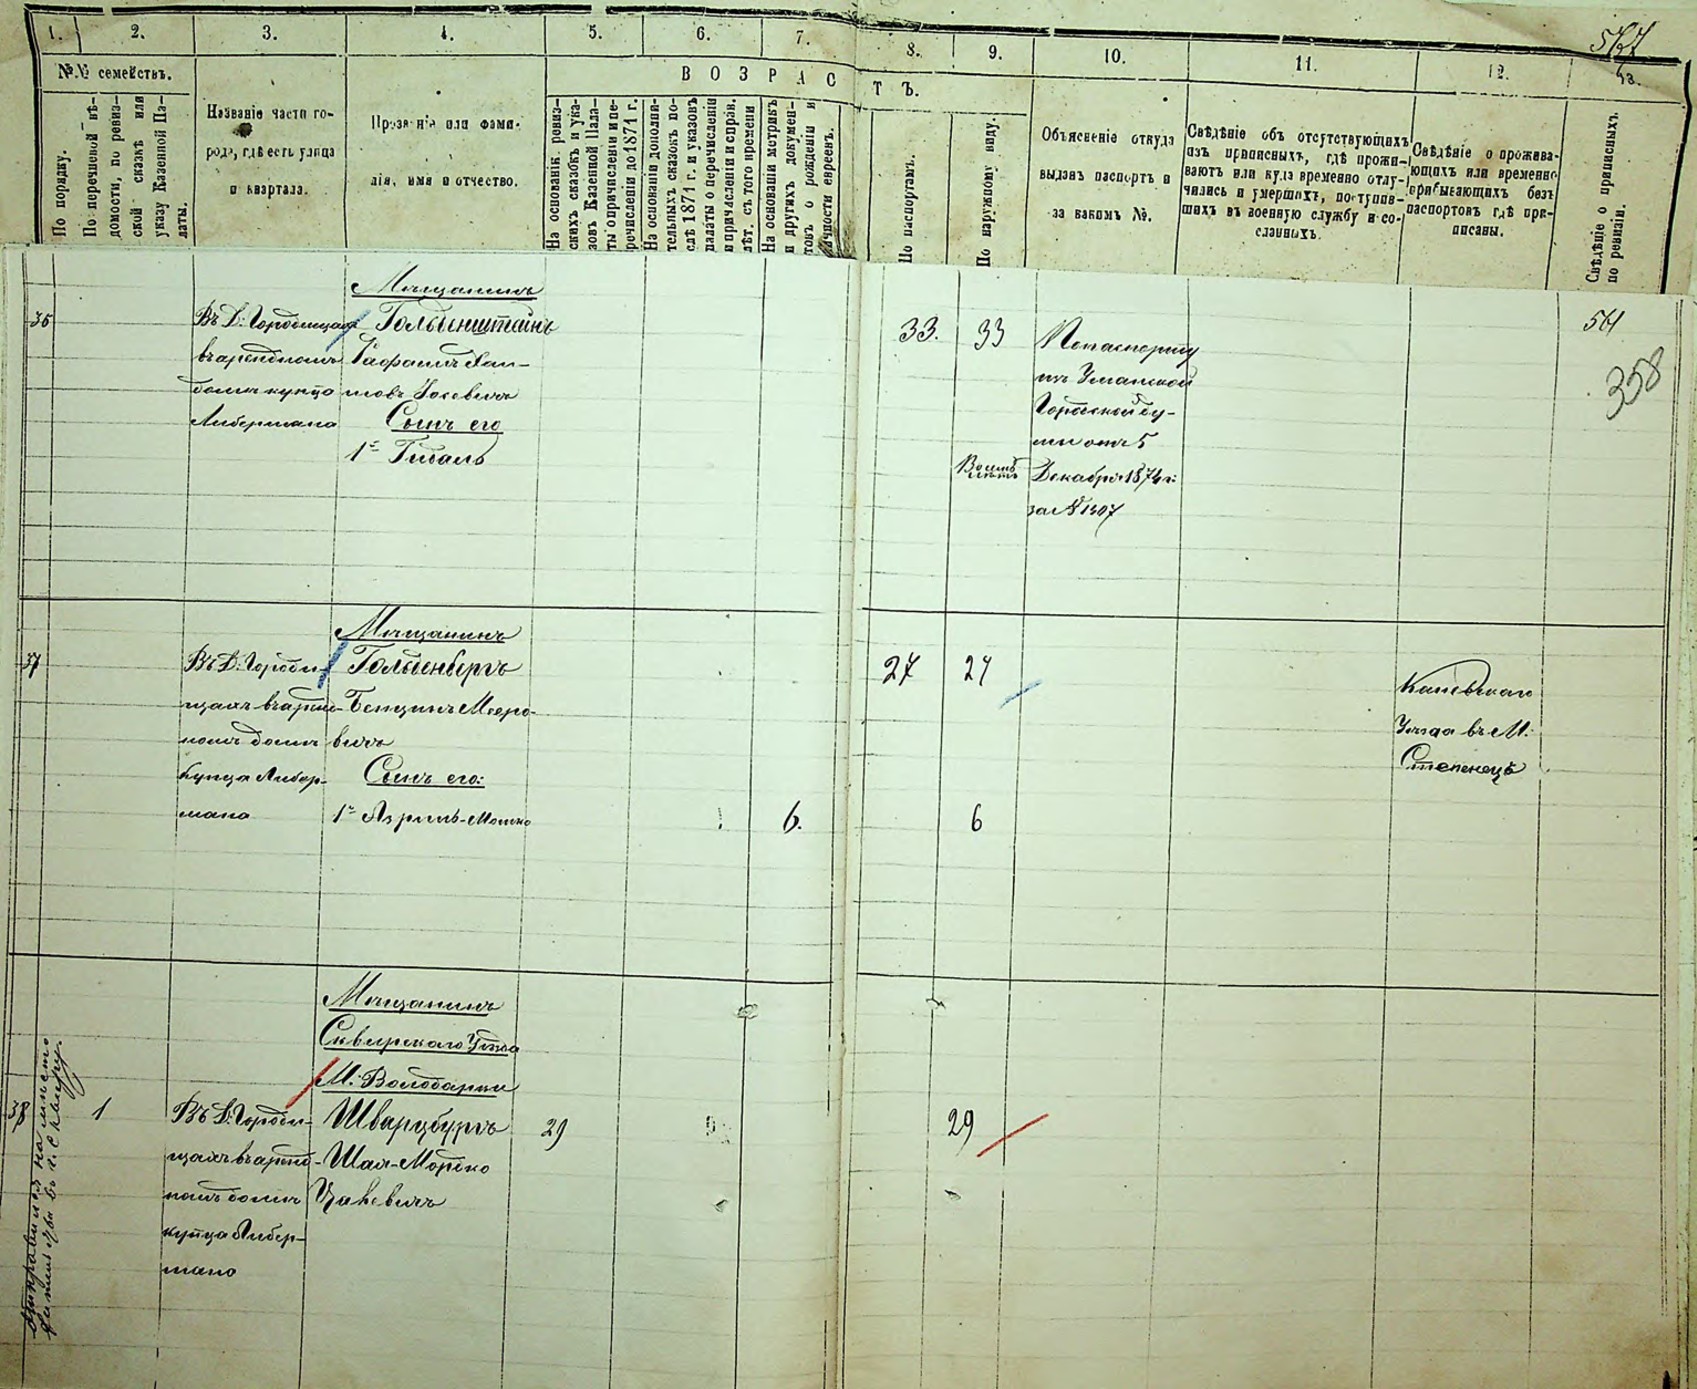 567
1. 2. 3. 4. 5. 6. 7. 8. 9. 10. 11. 12. 13.
№№ семействъ.
По порядку.
По перечневой вѣ-
домости, по ревиз-
ской сказкѣ или
указу Казенной Па-
латы.
Названіе части го-
рода, гдѣ есть улица
и квартала.
Прозваніе или фами-
лія, имя и отчество.
ВОЗРАСТЪ.
На основаніи ревиз-
скихъ сказокъ и ука-
зовъ Казенной Пала-
ты о причисленіи и пе-
речисленіи до 1871 г.
На основаніи дополни-
тельныхъ сказокъ по-
слѣ 1871 г. и указовъ
палаты о перечисленіи
и причисленіи и справ.
лѣт. съ того времени
На основаніи метрикъ
и другихъ докумен-
товъ о рожденіи и
личности евреевъ.
По паспортамъ.
По наружному виду.
Объясненіе откуда
выданъ паспортъ и
за какимъ №.
Свѣдѣніе объ отсутствующихъ
изъ приписныхъ, гдѣ прожи-
ваютъ или куда временно отлу-
чились и умершихъ, поступив-
шихъ въ военную службу и со-
сланныхъ.
Свѣдѣніе о прожива-
ющихъ или временно
прибывающихъ безъ
паспортовъ гдѣ при-
писаны.
Свѣдѣніе о приписныхъ.
по ревизіи.
36
Въ Д: Городищахъ
въ арендномъ
домѣ купца
Либермана
Мѣщанинъ
Гольденштейнъ
Рафаилъ Хаи-
мовъ Іосевичъ
Сынъ его
1й Гидаль
33.
33
Восемь
лѣтъ
По паспорту
изъ Уманской
Городской Ду-
мы отъ 5
Декабря 1874 г:
за № 1307
561
358
37
Въ Д: Городи-
щахъ въ аренд-
номъ домѣ
купца Либер-
мана
Мѣщанинъ
Гольденбергъ
Бенционъ Мееро-
вичъ
Сынъ его:
1й Азриль-Мошко
6.
27
27
6
Каневскаго
Уѣзда въ М:
Степенецъ
38
1
Въ Д: Городи-
щахъ въ аренд-
номъ домѣ
купца Либер-
мана
Мѣщанинъ
Сквирскаго Уѣзда
М: Володарки
Шварцбургъ
Шая-Мордко
Цалевичъ
29
29
отправился на мѣсто
жительства въ г. Сквиру.